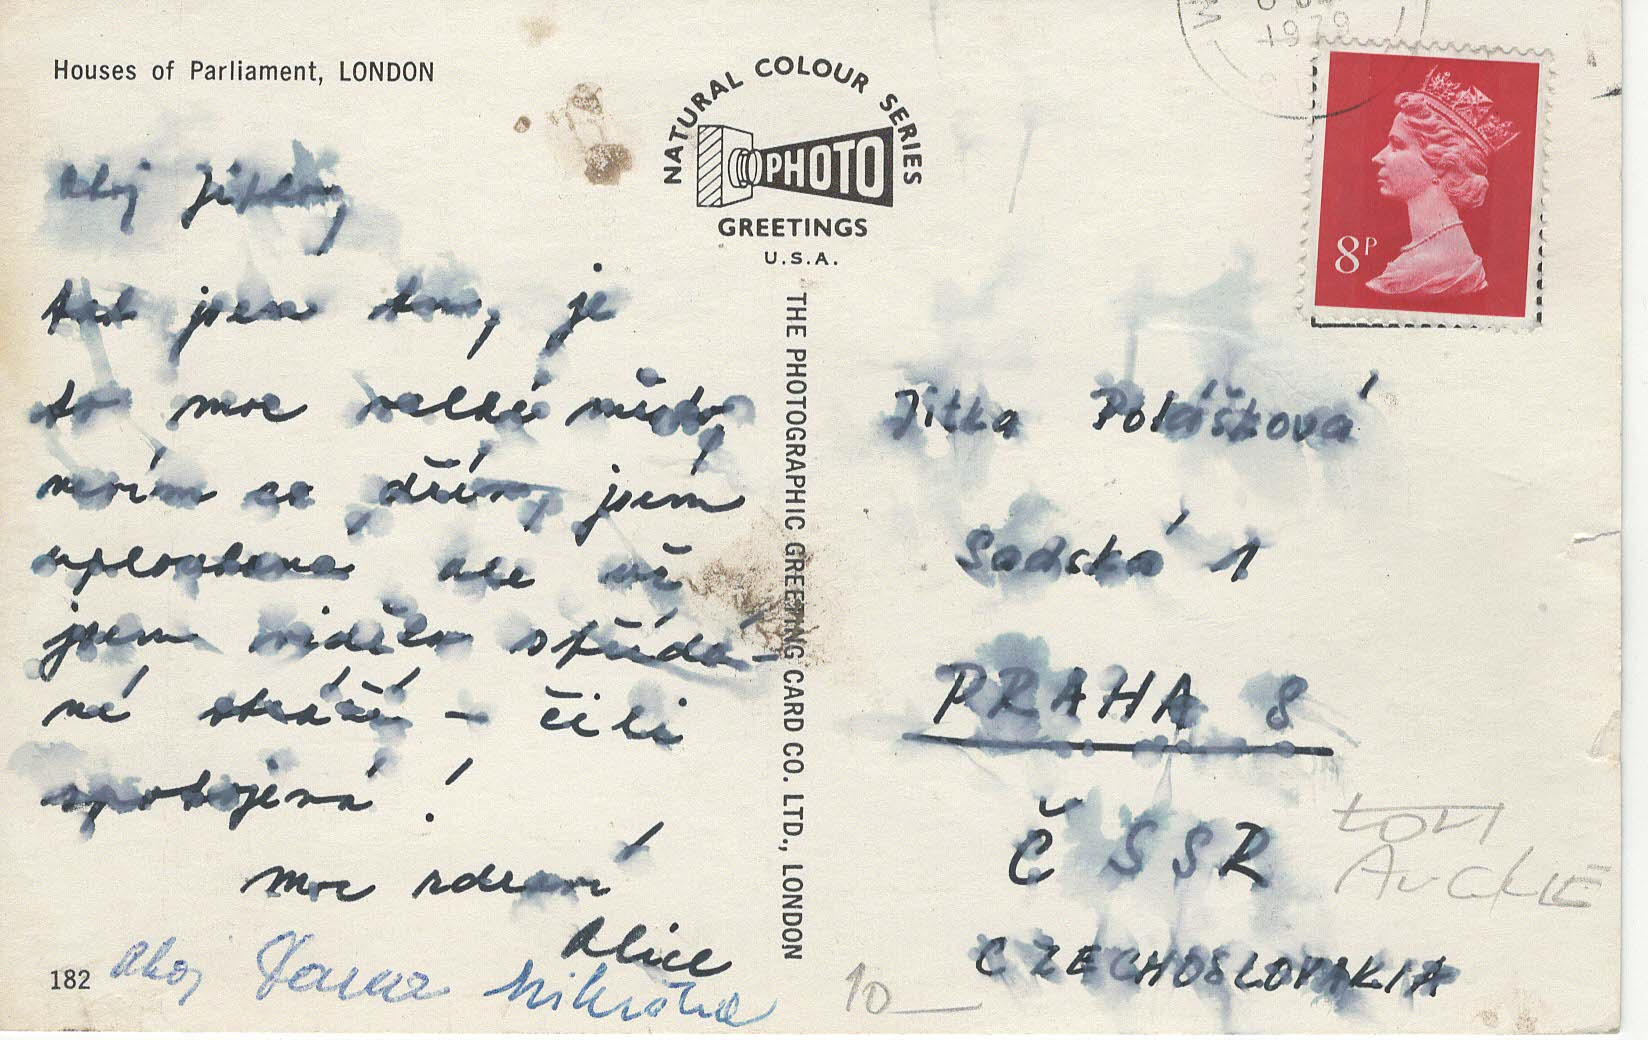 Houses of Parliament, LONDON
NATURAL COLOUR SERIES
PHOTO
GREETINGS
U.S.A.
THE PHOTOGRAPHIC GREETING CARD CO. LTD., LONDON
1979
8P
ahoj Jitko,
tak jsem tam, je
to moc velké město,
nevím co dřív, jsem
uplostená ale už
jsem viděla střídá-
ní stráží – čili
spokojená!
moc zdraví
Alice
ahoj
182
Jitka Polášková
Sadská 1
PRAHA 8
ČSSR
CZECHOSLOVAKIA
10